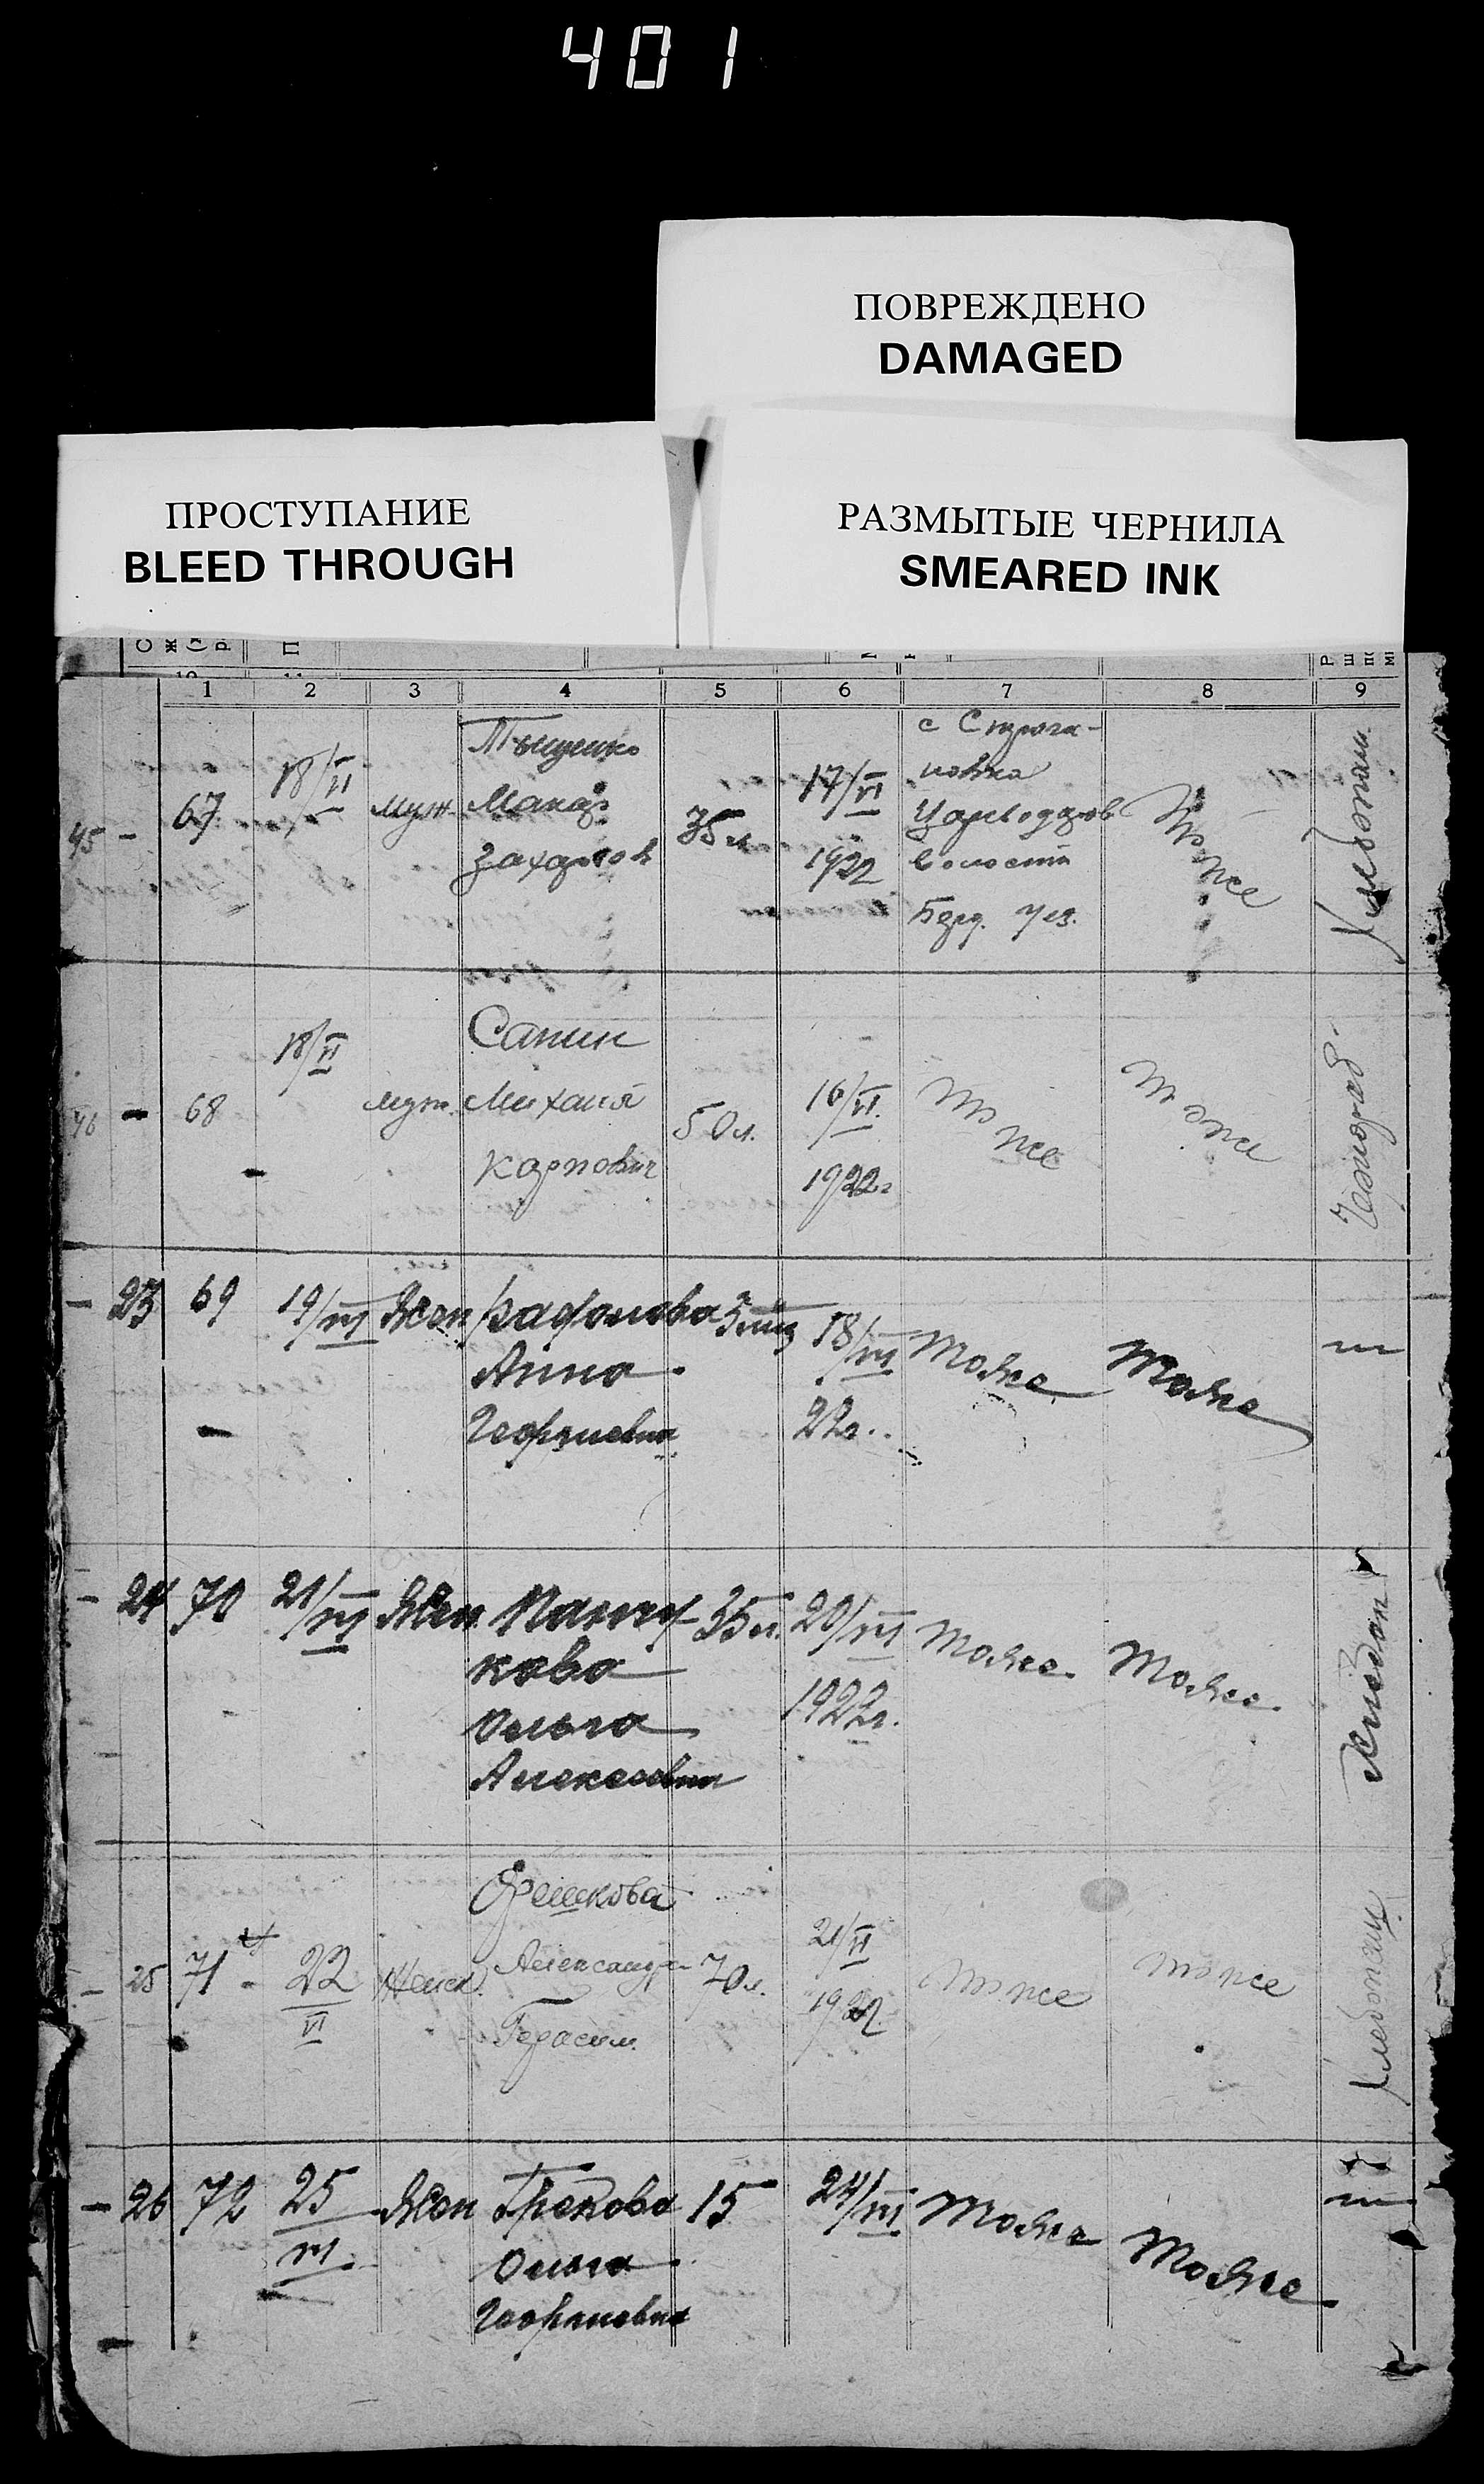 401
ПОВРЕЖДЕНО
DAMAGED
ПРОСТУПАНИЕ
BLEED THROUGH
РАЗМЫТЫЕ ЧЕРНИЛА
SMEARED INK
1 2 3 4 5 6 7 8 9
45 - 67 18/VI муж.
Макар
35 л.
17/VI
1922
с Строга-
новка
волости
Берд. уез.
то же
46 - 68 18/VI муж.
Санин
Михаил
Карпович
50 л.
16/VI
1922г
то же
то же
- 23 69 19/VI Жен
Анна
Георгиевна
18/VI
22г.
тоже
тоже
- 24 70 21/VI Жен.
кова
Ольга
Алексеевна
35 л.
20/VI
1922г.
тоже
тоже
Хлебоп
- 25 71 22/VI Женск.
Александра
Герасим.
70 л.
21/VI
1922
то же
то же
Хлебопаш
- 26 72 25/VI Жен
Грекова
Ольга
Георгиевна
15
24/VI
тоже
тоже